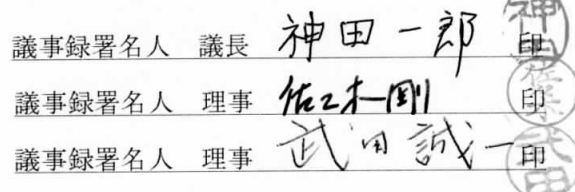 議事録署名人 議長 神田一郎 印
議事録署名人 理事 佐々木剛 印
議事録署名人 理事 武田誠一 印